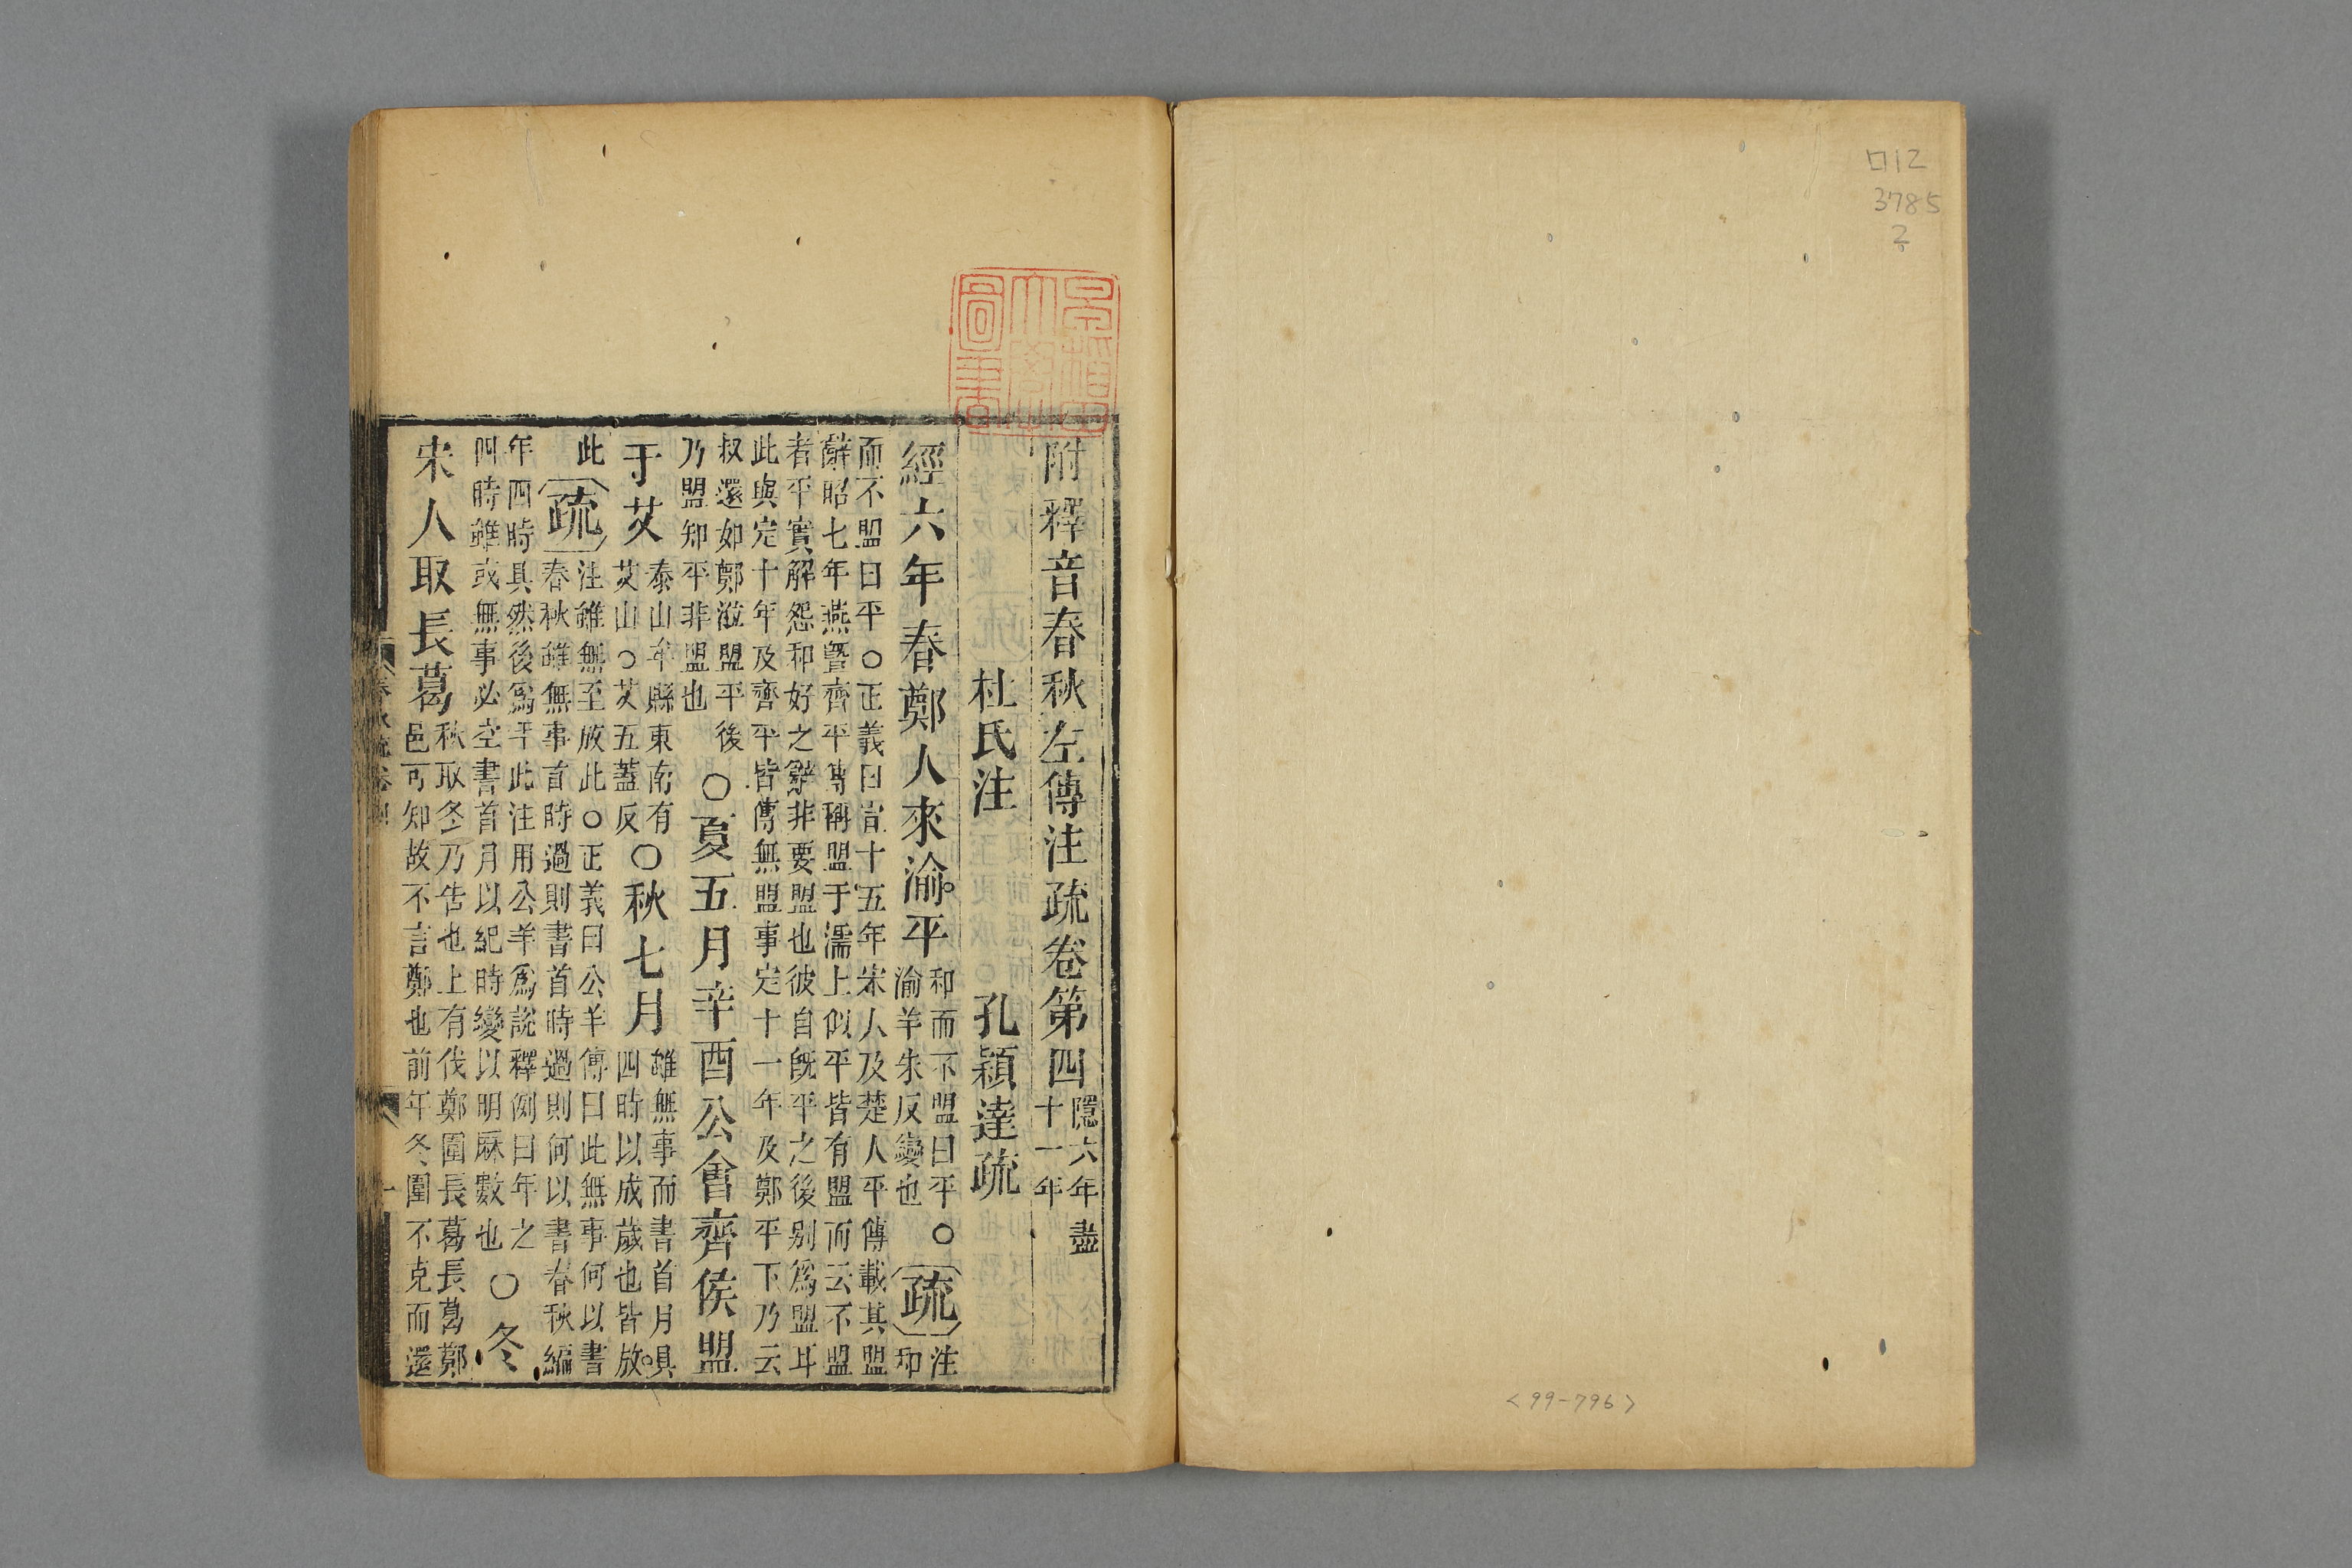 口12
3785
2
<99-796>
早稻田大學圖書
附釋音春秋左傳注疏卷第四
隱六年盡
十一年
杜氏注 孔穎達疏
經六年春鄭人來渝平
和而不盟曰平○
渝羊朱反變也
疏
注
和
而不盟曰平○正義曰宣十五年宋人及楚人平傳載其盟
辭昭七年燕暨齊平傳稱盟于濡上似平皆有盟而云不盟
者平實解怨和好之辭非要盟也彼自既平之後别爲盟耳
此與定十年及齊平皆傳無盟事定十一年及鄭平下乃云
叔還如鄭涖盟平後
乃盟知平非盟也
○夏五月辛酉公會齊侯盟
于艾
泰山牟縣東南有
艾山○艾五蓋反
○秋七月
雖無事而書首月具
四時以成歲也皆放
此
疏
注雖無至放此○正義曰公羊傳曰此無事何以書
春秋雖無事首時過則書首時過則何以書春秋編
年四時具然後爲年此注用公羊爲說釋例曰年之
四時雖或無事必空書首月以紀時變以明厤數也
○冬
宋人取長葛
秋取冬乃告也上有伐鄭圍長葛長葛鄭
邑可知故不言鄭也前年冬圍不克而還